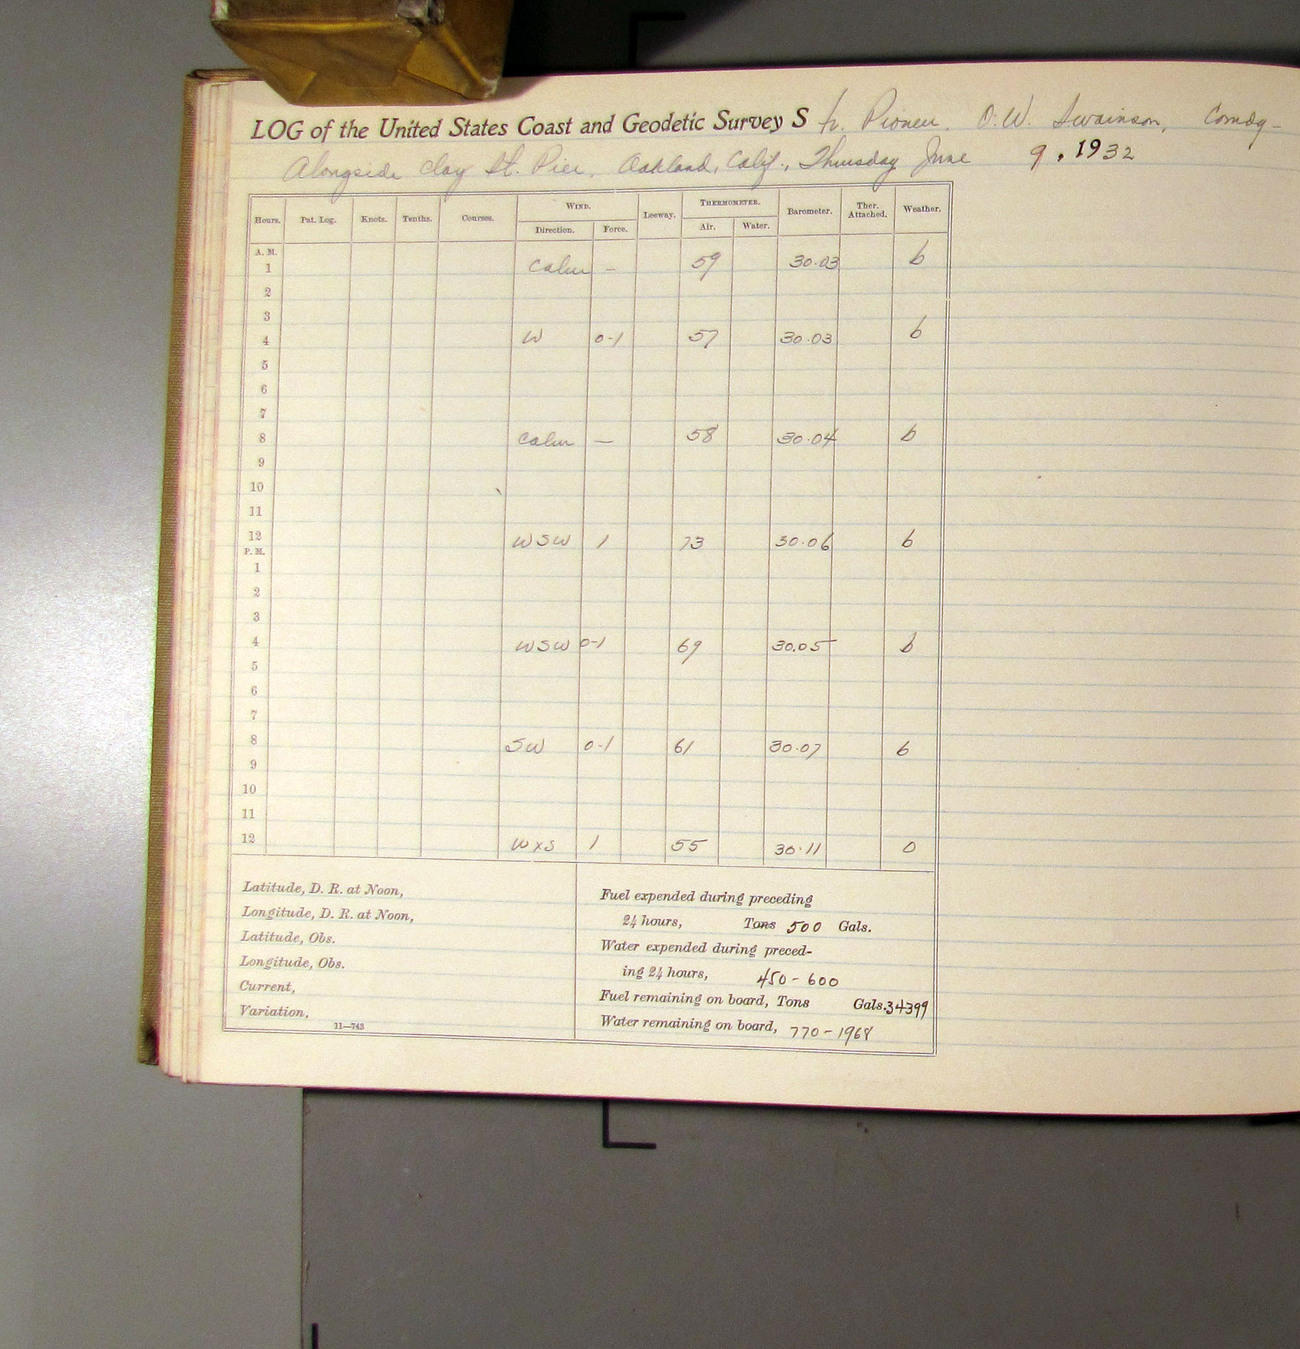 LOG of the United States Coast and Geodetic Survey Sh. Pioneer. O.W. Swainson, Comdg-
Alongside Clay St. Pier, Oakland, Calif., Thursday June 9, 1932
Hours. Pat. Log. Knots. Tenths. Courses. WIND. Leeway. THERMOMETER. Barometer. Ther. Attached. Weather.
Direction. Force. Air. Water.
A. M.
1 Calm – 59 30.03 b
2
3
4 W 0-1 57 30.03 b
5
6
7
8 Calm — 58 30.04 b
9
10
11
12 WSW 1 73 30.06 b
P. M.
1
2
3
4 WSW 0-1 69 30.05 b
5
6
7
8 SW 0-1 61 30.07 b
9
10
11
12 WxS 1 55 30.11 0
Latitude, D. R. at Noon,
Longitude, D. R. at Noon,
Latitude, Obs.
Longitude, Obs.
Current,
Variation,
11—743
Fuel expended during preceding
24 hours, Tons 500 Gals.
Water expended during preced-
ing 24 hours, 450 - 600
Fuel remaining on board, Tons Gals. 34399
Water remaining on board, 770 - 1968